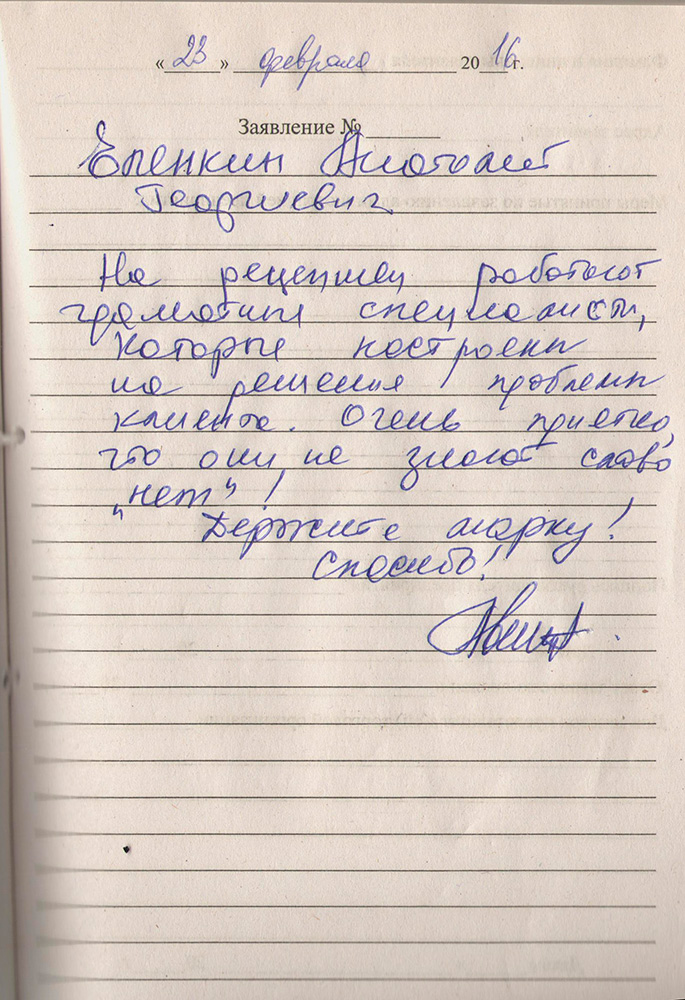 « 23 » февраля 2016 г.
Заявление №
Еленкин Анатолий
Георгиевич
На рецепшен работают
грамотные специалисты,
которые настроены
на решения проблемы
клиента. Очень приятно,
что они не знают слово
"нет"!
Держите марку!
Спасибо!